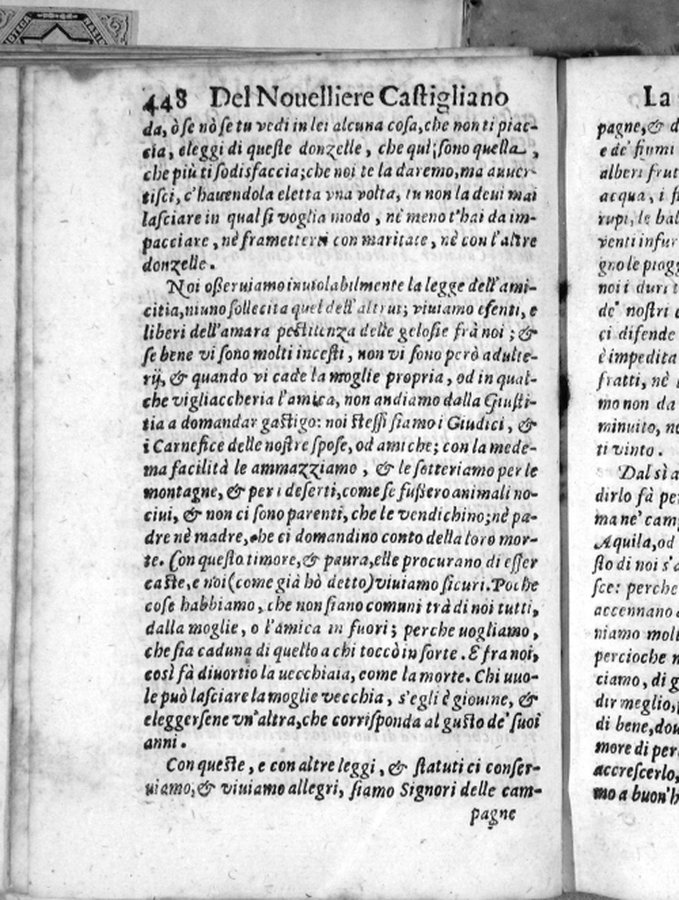 448 Del Nouelliere Castigliano
da, ò se nò se tu vedi in lei alcuna cosa, che non ti piac-
cia, eleggi di queste donzelle, che qui sono quella,
che più ti sodisfaccia; che noi te la daremo, ma auuer-
tisci, c'hauendola eletta vna volta, tu non la deui mai
lasciare in qual si voglia modo, nè meno t'hai da im-
pacciare, nè frametterti con maritate, nè con l'altre
donzelle.
Noi osseruiamo inuiolabilmente la legge dell'ami-
citia, niuno sollecita quel dell'altrui; viuiamo esenti, e
liberi dell'amara pestilenza delle gelosie frà noi; &
se bene vi sono molti incesti, non vi sono però adulte-
rij, & quando vi cade la moglie propria, od in qual-
che vigliaccheria l'amica, non andiamo dalla Giusti-
tia a domandar gastigo: noi stessi siamo i Giudici, &
i Carnefice delle nostre spose, od amiche; con la mede-
ma facilità le ammazziamo, & le sotteriamo per le
montagne, & per i deserti, come se fussero animali no-
ciui, & non ci sono parenti, che le vendichino; nè pa-
dre nè madre, che ci domandino conto della loro mor-
te. Con questo timore, & paura, elle procurano di esser
caste, e noi (come già hò detto) viuiamo sicuri. Poche
cose habbiamo, che non siano comuni trà di noi tutti,
dalla moglie, o l'amica in fuori; perche uogliamo,
che sia caduna di quello a chi toccò in sorte. E fra noi,
così fà diuortio la uecchiaia, come la morte. Chi uuo-
le può lasciare la moglie vecchia, s'egli è giouine, &
eleggersene vn'altra, che corrisponda al gusto de' suoi
anni.
Con queste, e con altre leggi, & statuti ci conser-
uiamo, & viuiamo allegri, siamo Signori delle cam-
pagne
La
pagne, & d
e de' fiumi
alberi frut
acqua, i fi
rupi, le bal
venti infur
gno le piogg
noi i duri t
de' nostri c
ci difende
è impedita
fratti, nè l
mo non da
minuito, ne
ti vinto.
Dal sì a
dirlo fà per
ma ne' camp
Aquila, od
sto di noi s'a
sce: perche
accennano a
niamo molt
percioche n
ciamo, di g
dir meglio,
di bene, dou
more di per
accrescerlo,
mo a buon'h